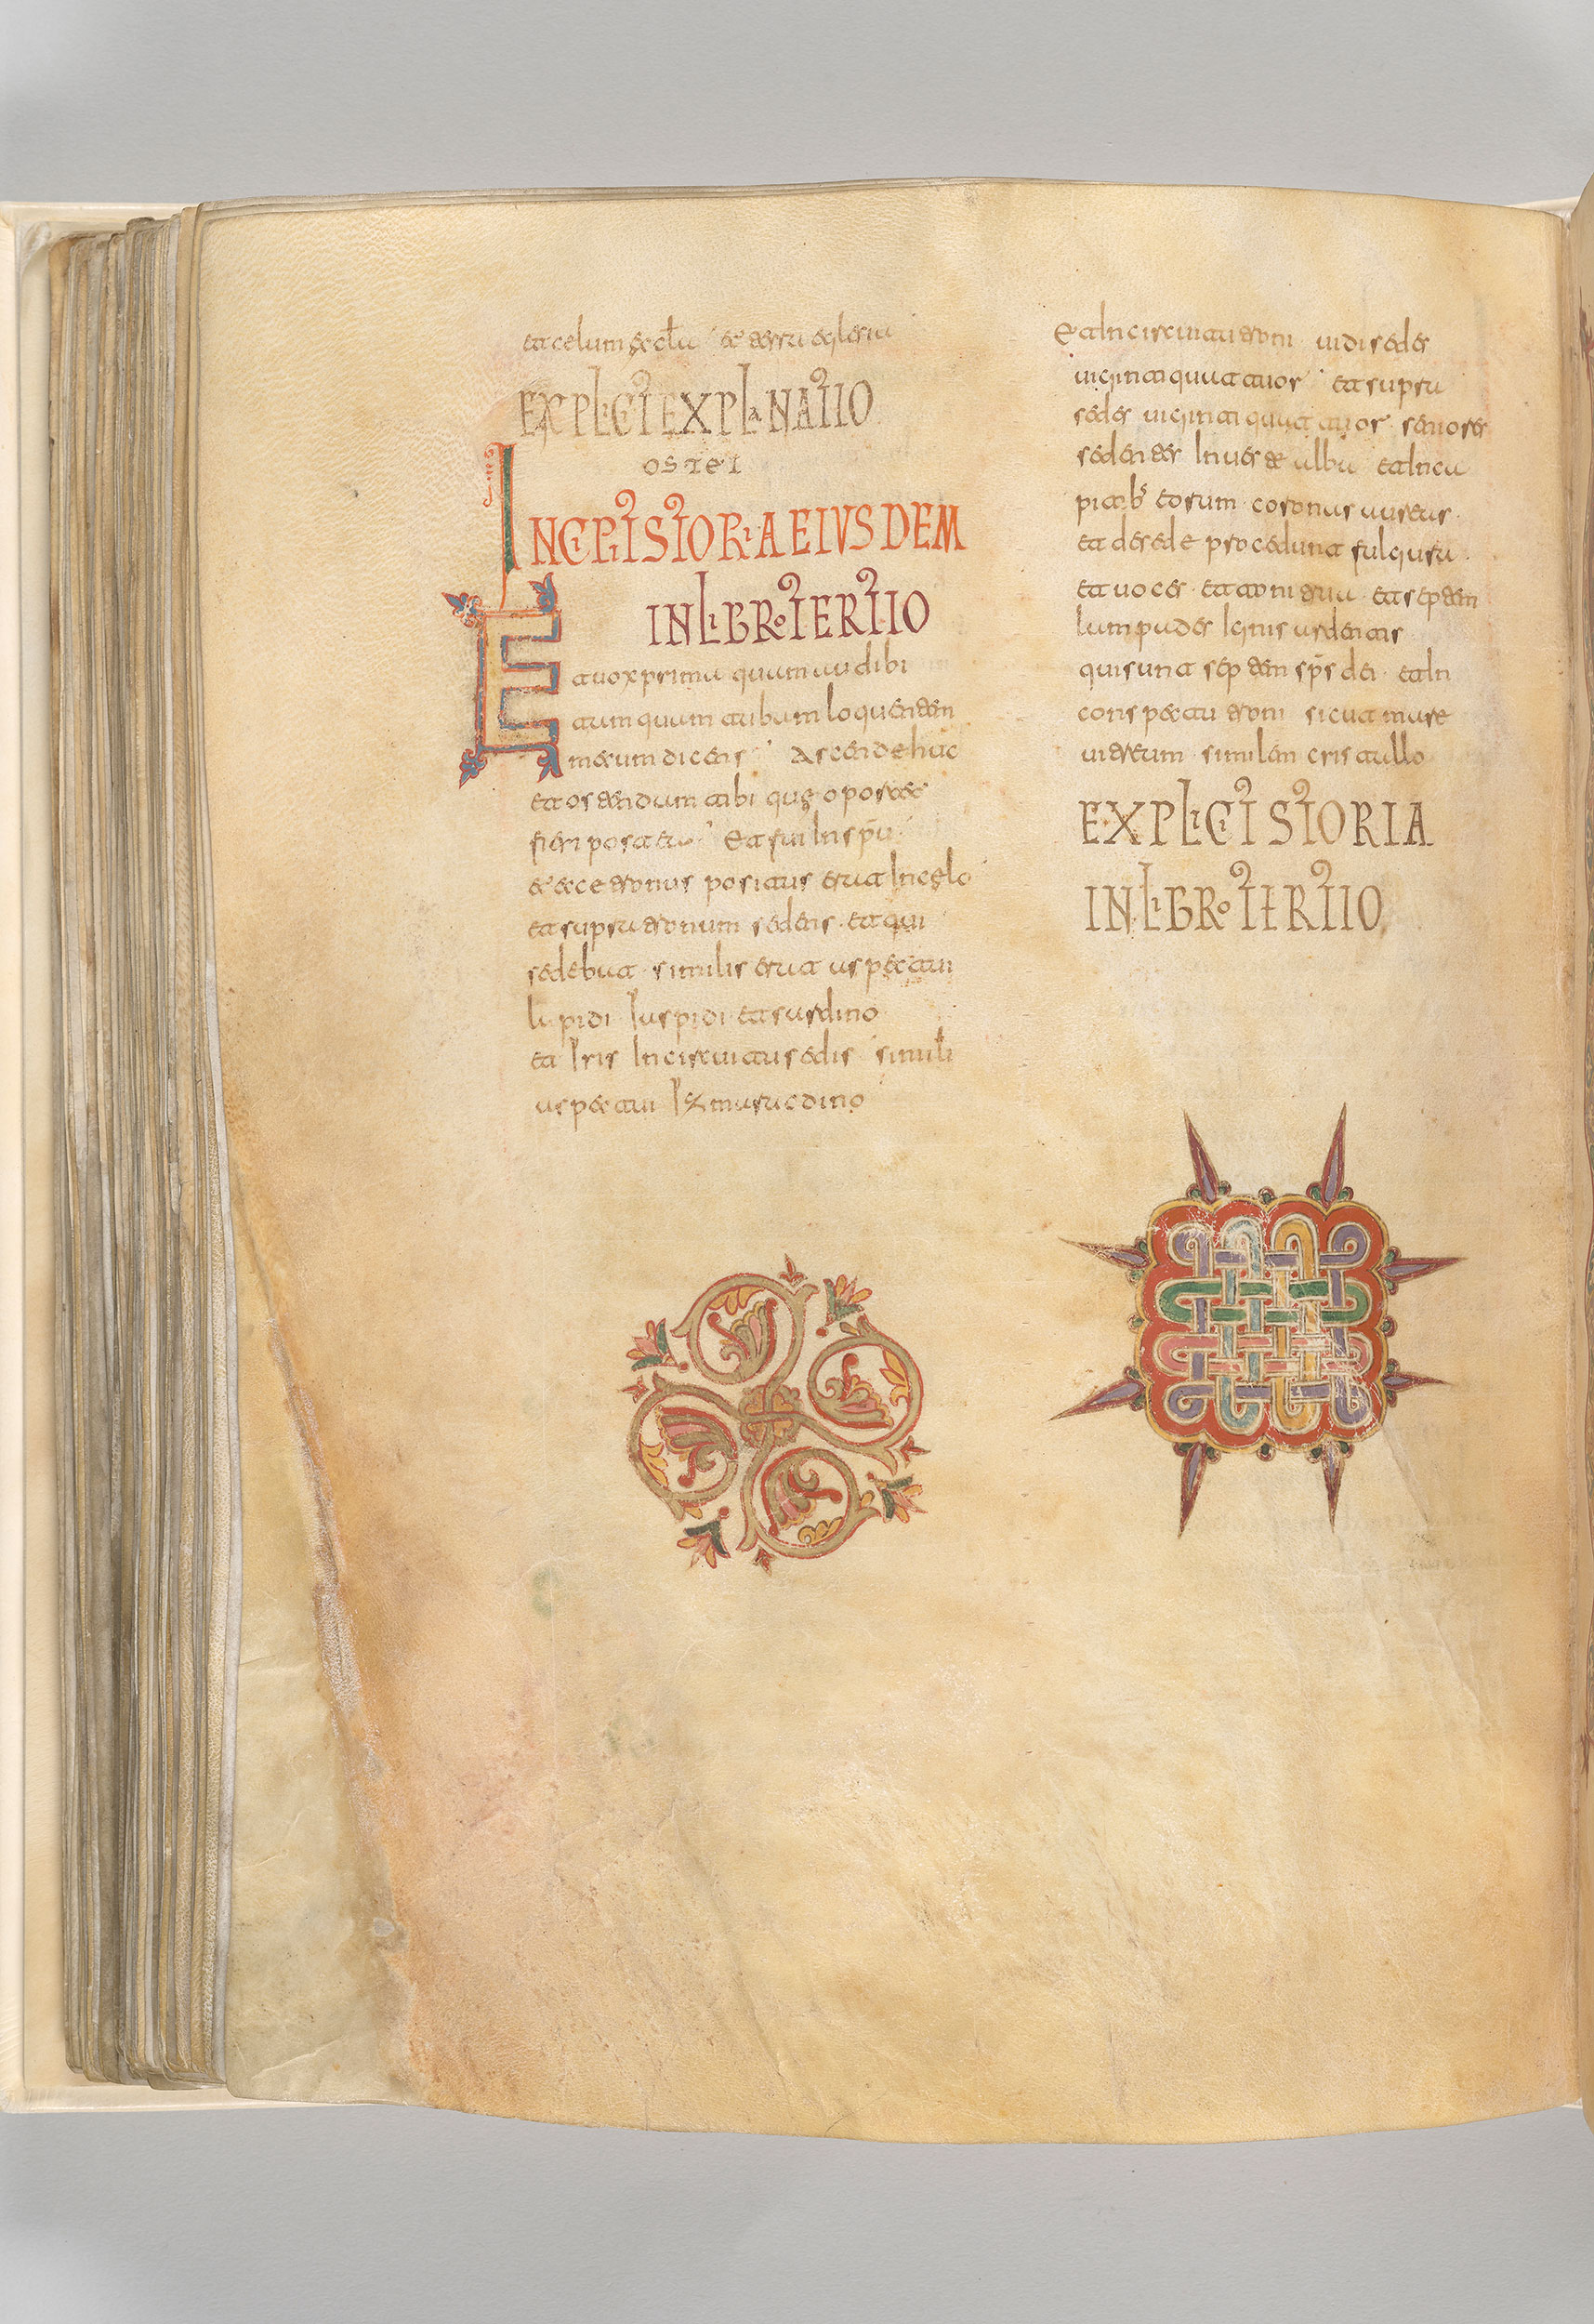 et celum ęccl̄a et terra ęclesia
EXPLICIT EXPLANATIO
OSTEI
INCIPIT STORIA EIVSDEM
IN LIBRO TERTIO
Et uox prima quam audibi
tamquam tubam loquentem
mecum dicens Ascende huc
et ostendam tibi quę oportet
fieri post ea Et fui In sp̄u
et ecce tronus positus erat In cęlo
et supra tronum sedens et qui
sedebat similis erat aspectui
lapidi Iaspidi et sardino
et Iris In circuitu sedis simili
aspectui Izmaracdino
Et In circuitu troni uidi sedes
uiginti quattuor et supra
sedes uiginti quattuor seniores
sedentes In ueste alba et In ca
pitib; eorum coronas aureas
et de sede procedunt fulgura
et uoces et tonitrua et septem
lampades ignis ardentis
qui sunt septem sp̄s dei et In
conspectu troni sicut mare
uitreum similem cristallo
EXPLICIT STORIA
IN LIBRO TERTIO